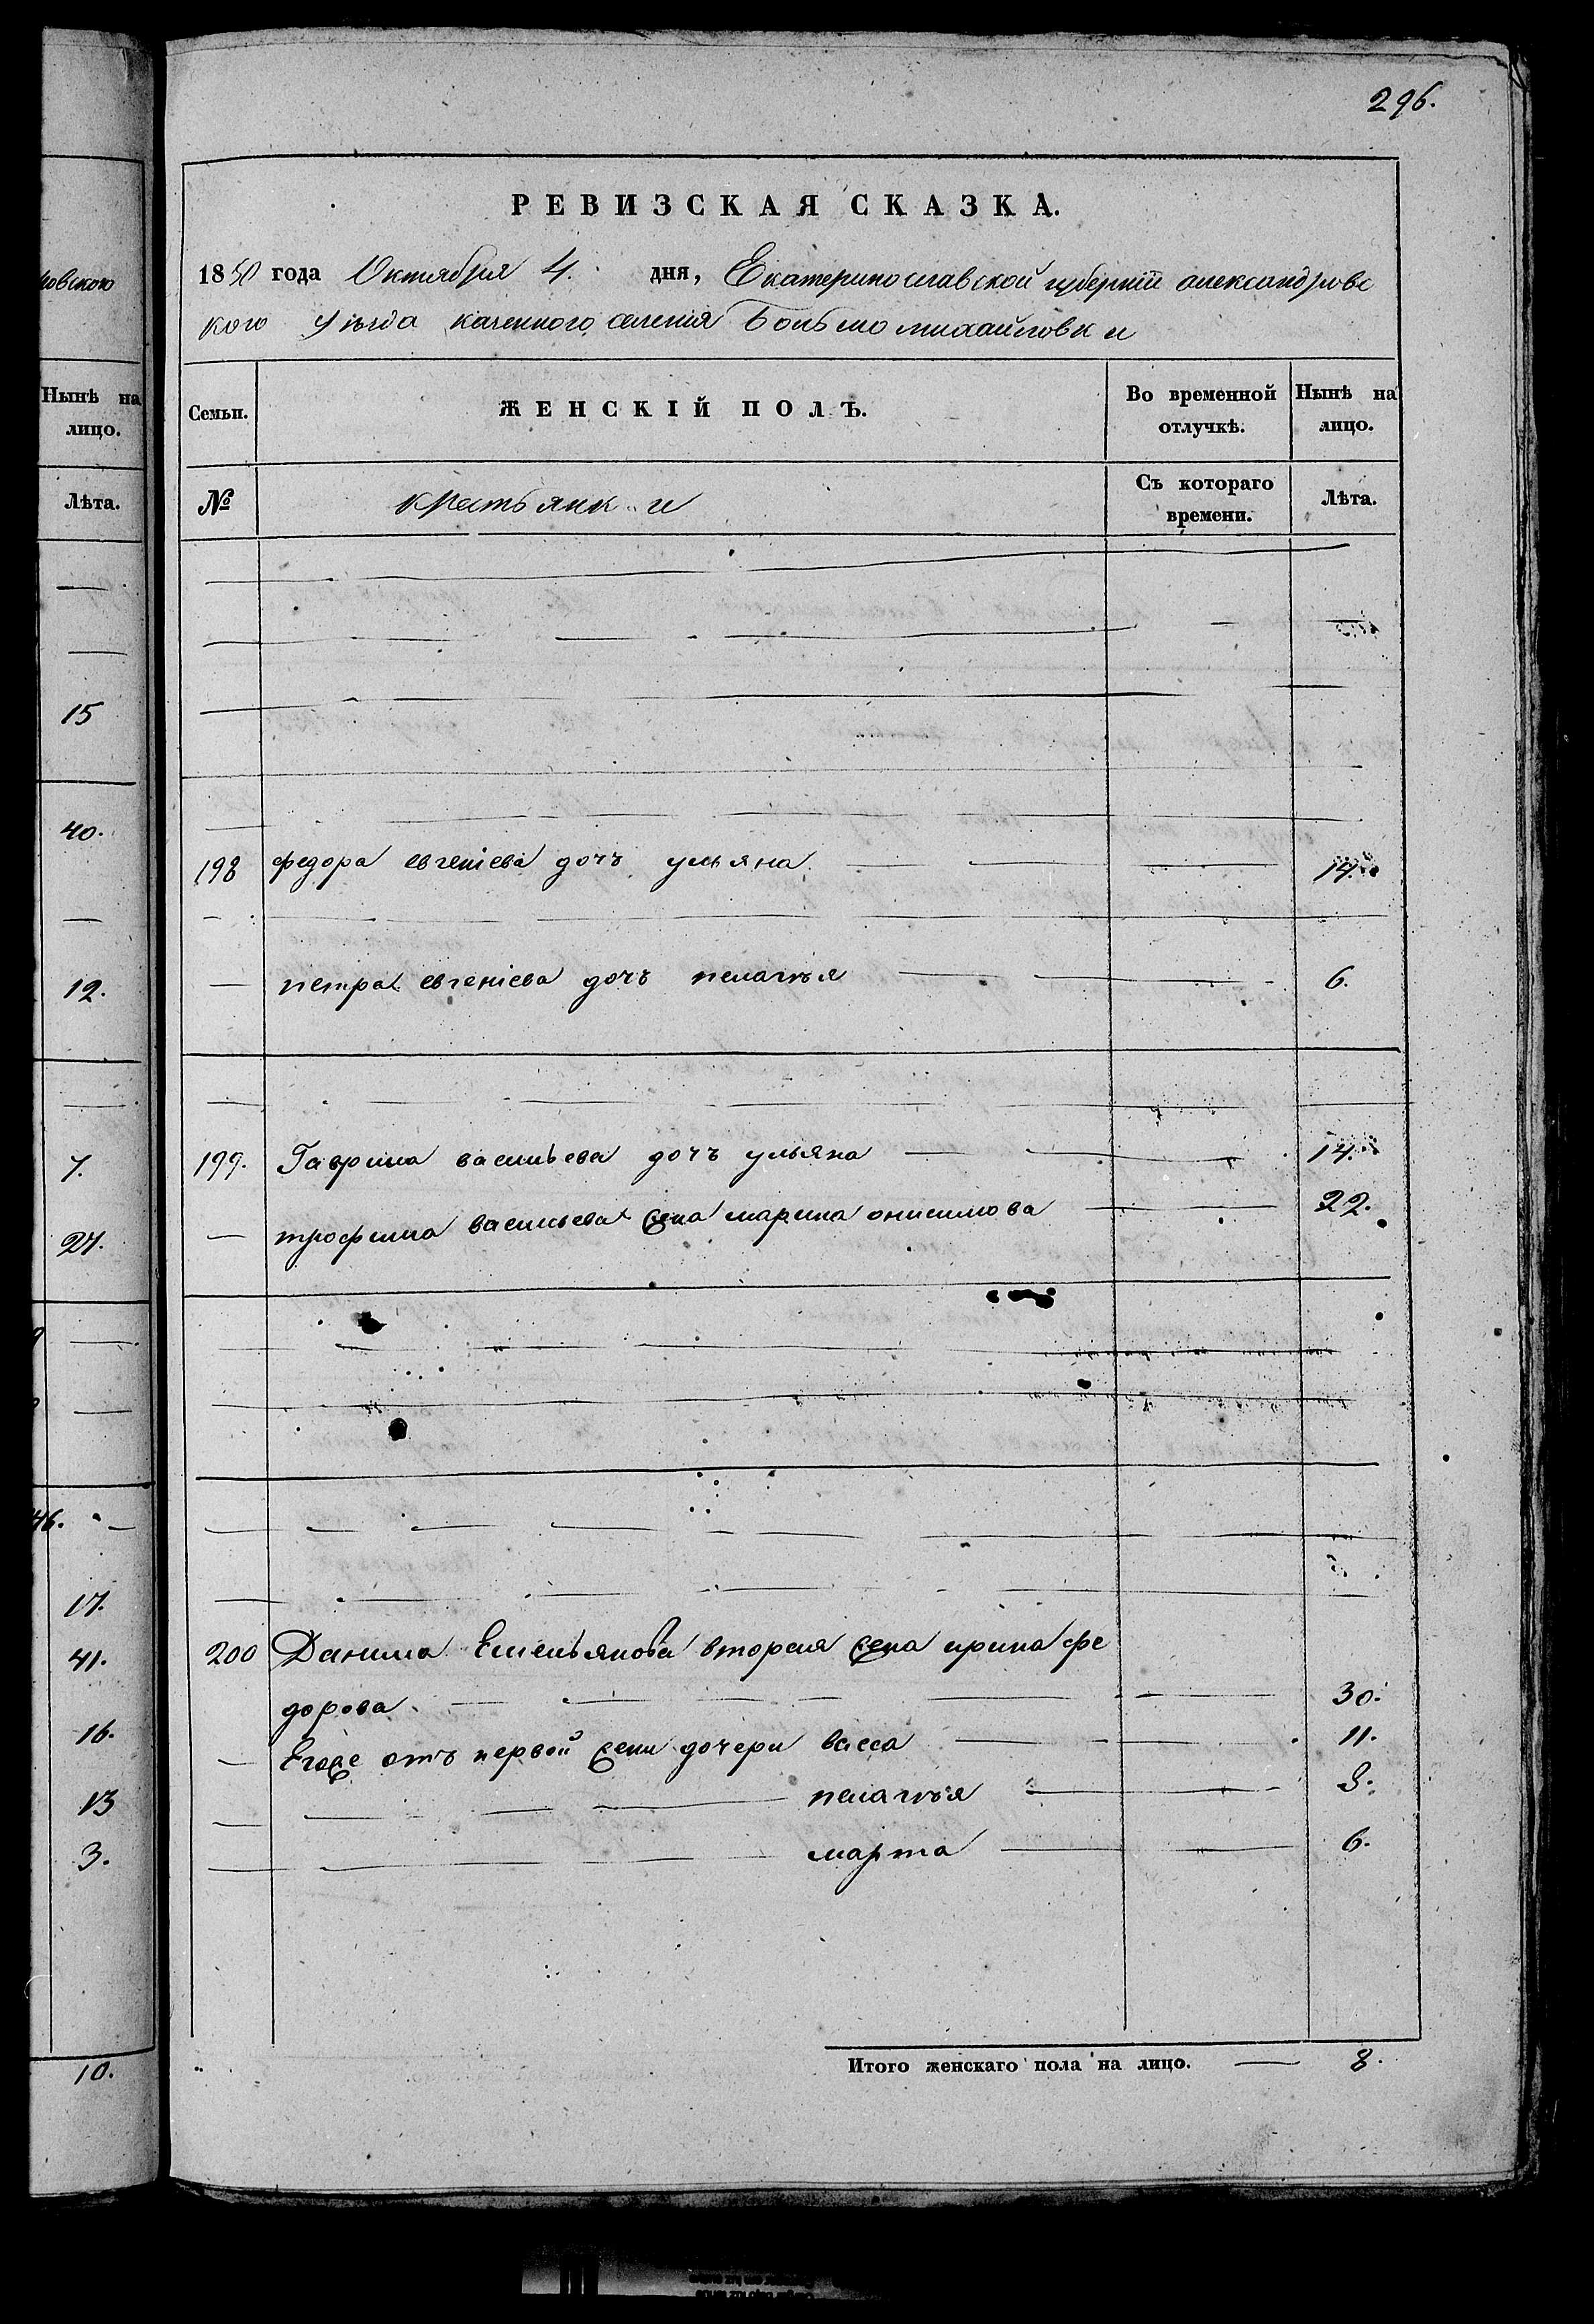 296.
РЕВИЗСКАЯ СКАЗКА.
1850 года Октября 4. дня, Екатеринославской губернiи александровс
кого уѣзда казенного селения Большо михайловки
новского
Нынѣ на
лицо.
Лѣта.
15
40.
12.
7.
27.
46.
17.
41.
16.
13
3.
10.
Семьи. ЖЕНСКІЙ ПОЛЪ. Во временной отлучкѣ. Нынѣ на лицо.
№ крестьянки Съ котораго времени. Лѣта.
198 федора евгенiева дочъ ульяна 14.
петра евгенiева дочъ пелагъя 6.
199. Гаврила васильева дочъ ульяна 14.
трофима васильева жена марина онисимова 22.
200 Данила Емельянова вторая жена ирина фе
дорова 30.
Егоже отъ первой жени дочери васса 11.
пелагъя 8.
марта 6.
Итого женскаго пола на лицо. 8.